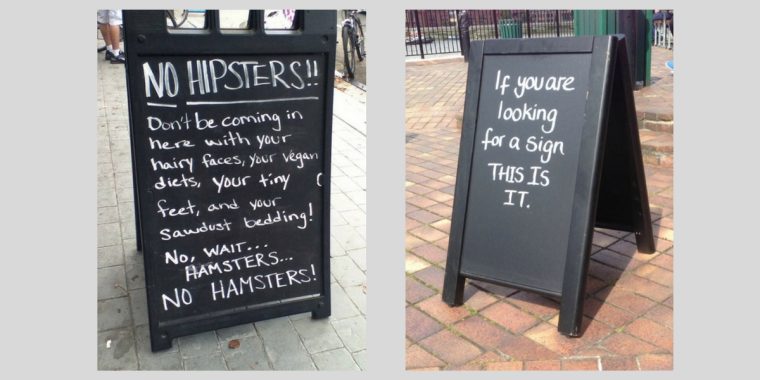 NO HIPSTERS!!
Don't be coming in
here with your
hairy faces, your vegan
diets, your tiny
feet, and your
sawdust bedding!
No, WAIT...
HAMSTERS...
NO HAMSTERS!
If you are
looking
for a sign
THIS IS
IT.